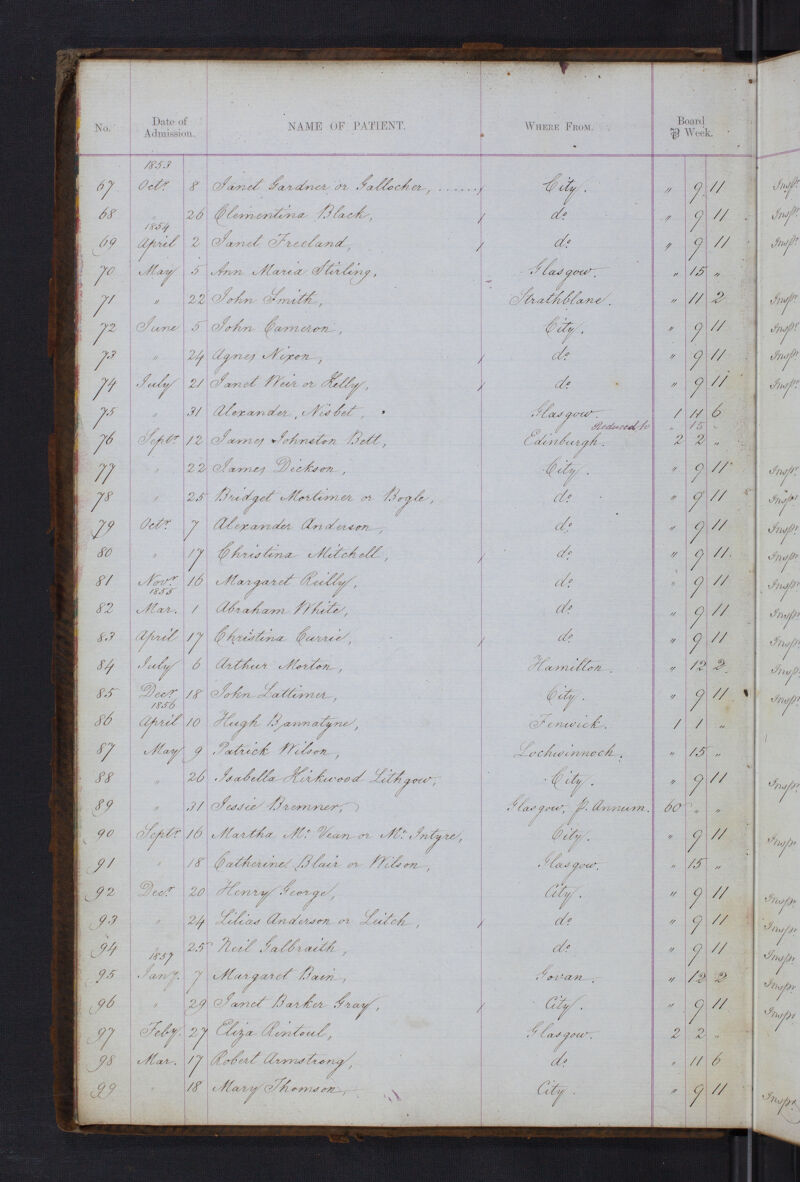 No. Date of Admission. NAME OF PATIENT. WHERE FROM. Board ⅌ Week.
1853
67 Octr. 8 Janet Gardner or Gallocher, City. " 9 11 Inspr.
68 " 26 Clementina Black, do " 9 11 Inspr.
1854
69 April 2 Janet Freeland, do " 9 11 Inspr.
70 May 5 Ann Maria Stirling, Glasgow. " 15 "
71 " 22 John Smith, Strathblane. " 11 2 Inspr.
72 June 5 John Cameron, City. " 9 11 Inspr.
73 " 24 Agnes Nixon, do " 9 11 Inspr.
74 July 21 Janet Weir or Kelly, do " 9 11 Inspr.
75 " 31 Alexander Nisbet, Glasgow. 1 11 6
Reduced to " 15 "
76 Septr. 12 James Johnston Bett, Edinburgh. 2 2 "
77 " 22 James Dickson, City. " 9 11 Inspr.
78 " 25 Bridget Mortimer or Bogle, do " 9 11 Inspr.
79 Octr. 7 Alexander Anderson, do " 9 11 Inspr.
80 " 17 Christina Mitchell, do " 9 11 Inspr.
81 Novr. 16 Margaret Reilly, do " 9 11 Inspr.
1855
82 Mar. 1 Abraham White, do " 9 11 Inspr.
83 April 17 Christina Currie, do " 9 11 Inspr.
84 July 6 Arthur Morton, Hamilton. " 12 2 Inspr.
85 Decr. 18 John Lattimer, City. " 9 11 Inspr.
1856
86 April 10 Hugh Bannatyne, Fenwick. 1 1 "
87 May 9 Patrick Wilson, Lochwinnoch. " 15 "
88 " 26 Isabella Kirkwood Lithgow, City. " 9 11 Inspr.
89 " 31 Jessie Bremner, Glasgow, p. Annum. 60 " "
90 Septr. 16 Martha Mc Vean or Mc Intyre, City. " 9 11 Inspr.
91 " 18 Catherine Blair or Wilson, Glasgow. " 15 "
92 Decr. 20 Henry George, City. " 9 11 Inspr.
93 " 24 Lilias Anderson or Leitch, do " 9 11 Inspr.
94 " 25 Neil Galbraith, do " 9 11 Inspr.
1857
95 Jany. 7 Margaret Bain, Govan. " 12 2 Inspr.
96 " 29 Janet Barker Gray, City. " 9 11 Inspr.
97 Feby. 27 Eliza Rintoul, Glasgow. 2 2 "
98 Mar. 17 Robert Armstrong, do " 11 6
99 " 18 Mary Thomson, City. " 9 11 Inspr.